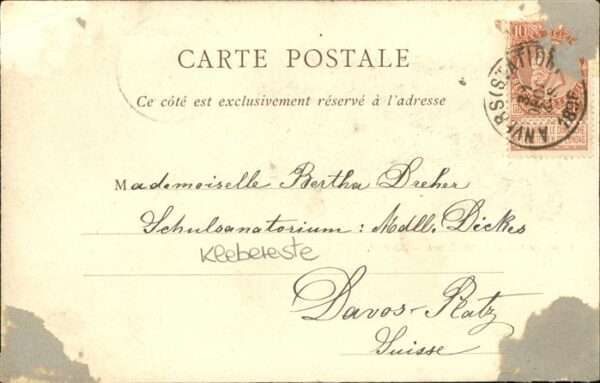 10
CARTE POSTALE
ANVERS (STATION)
Ce côté est exclusivement réservé à l'adresse
Mademoiselle Bertha Dreher
Schulsanatorium: Mdll. Dickes
Klebereste
Davos-Platz
Suisse